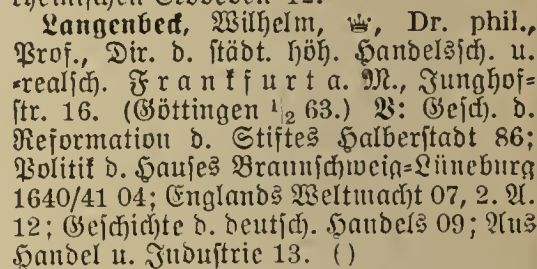 Langenbeck, Wilhelm, Dr. phil.,
Prof., Dir. d. städt. höh. Handelssch. u.
=realsch. Frankfurt a. M., Junghof=
str. 16. (Göttingen 1/2 63.) V: Gesch. d.
Reformation d. Stiftes Halberstadt 86;
Politik d. Hauses Braunschweig=Lüneburg
1640/41 04; Englands Weltmacht 07, 2. A.
12; Geschichte d. deutsch. Handels 09; Aus
Handel u. Industrie 13. ()